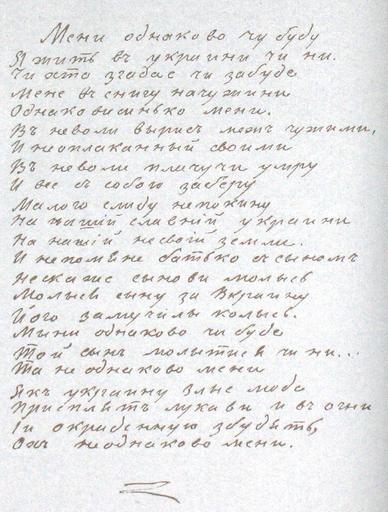 Мени однаково чи буду
Я жить въ украини чи ни.
Чи хто згадае чи забуде
Мене въ снигу на чужини
Однаковисинько мени.
Въ неволи вырисъ межъ чужими,
И неоплаканный своими
Въ неволи плачучи умру
И все съ собою заберу
Малого слиду непокину
На нашій славній украини
На нашій несвоій земли.
И непомьяне батько съ сыномъ
Нескаже сынови молысь
Молысь сыну за Вкраину
Його замучилы колысь.
Мини однаково чи буде
Той сынъ молытися чи ни...
Та не однаково мени
Якъ украину злые люде
Присплять лукави и въ огни
Іи окраденную збудять,
Охъ неоднаково мени.